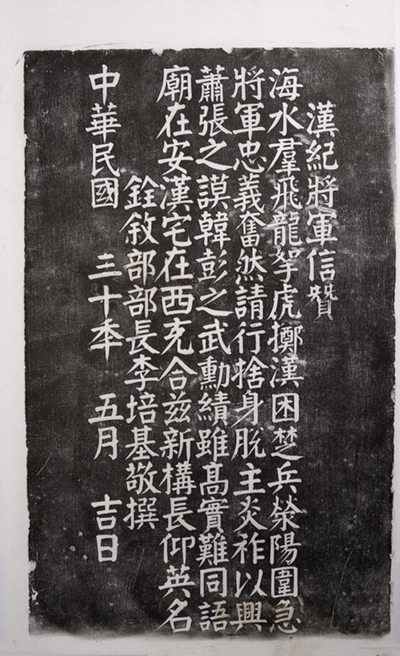 漢紀將軍信贊
海水羣飛龍拏虎擲漢困楚兵滎陽圍急
將軍忠義奮然請行捨身脫主炎祚以興
蕭張之謨韓彭之武勳績雖髙實難同語
廟在安漢宅在西充合茲新構長仰英名
銓敘部部長李培基敬撰
中華民國 三十年 五月 吉日